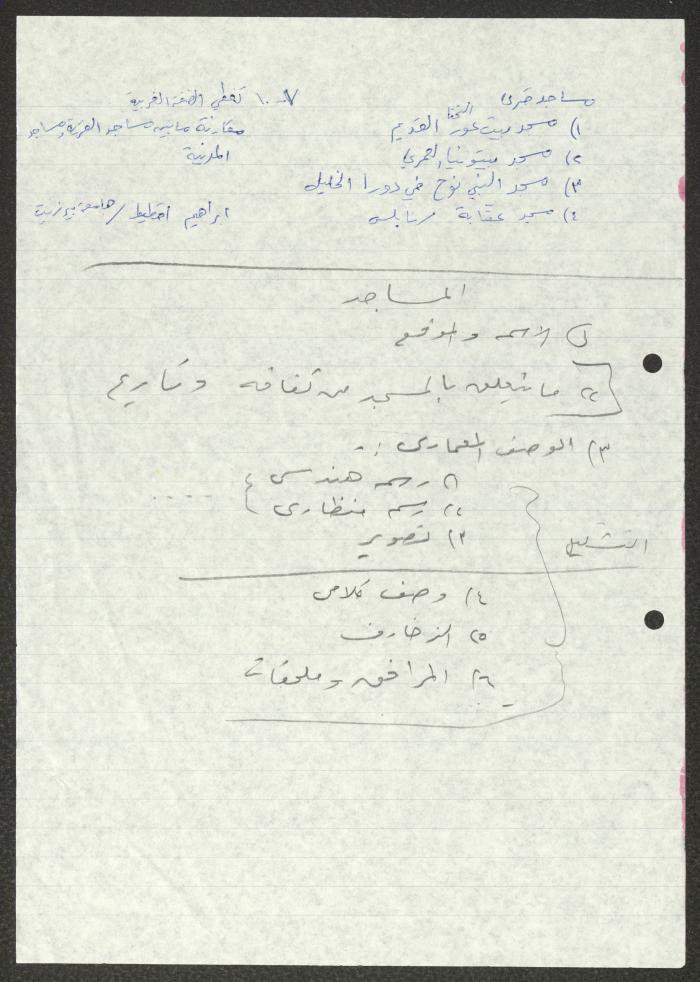 مساجد قرى
١) مسجد بيت عور القديم التحتا
٢) مسجد بيتونيا العمري
٣) مسجد النبي نوح في دورا الخليل
٤) مسجد عقابة / نابلس
٧ـ١٠ تغطي الضفة الغربية
مقارنة ما بين مساجد القرية ومساجد
المدينة
ابراهيم / جامعة بيرزيت
المساجد
١) الاسم والموقع
٢) ما يتعلق بالمسجد من ثقافه وتاريخ
٣) الوصف المعماري :-
١) رسم هندسي
٢) رسم منظاري
٣) تصوير
التشكيل
٤) وصف كلامي
٥) الزخارف
٦) المرافق وملحقات